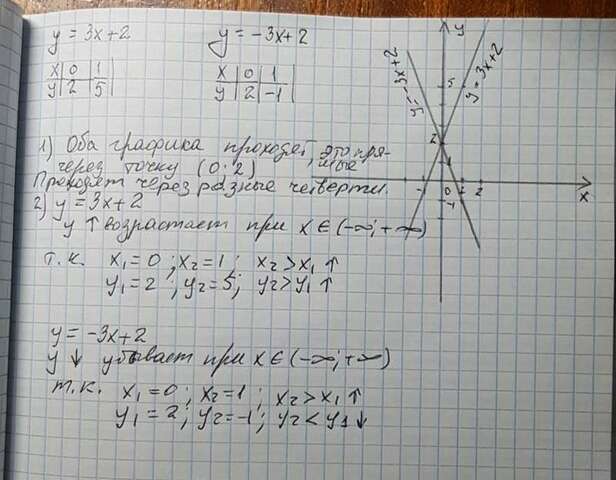 y = 3x+2
y = -3x+2
x 0 1
y 2 5
x 0 1
y 2 -1
1) Оба графика проходят, это пря-
через точку (0; 2) мые
Проходят через разные четверти.
2) y = 3x+2
y ↑ возрастает при x ∈ (-∞; +∞)
т.к. x₁=0 ; x₂=1 ; x₂>x₁ ↑
y₁=2 ; y₂=5; y₂>y₁ ↑
y = -3x+2
y ↓ убывает при x ∈ (-∞; +∞)
т.к. x₁=0 ; x₂=1 ; x₂>x₁ ↑
y₁=2; y₂=-1; y₂<y₁ ↓
y
y=-3x+2
y=3x+2
5
2
1
-1 0 1 2
x
-1